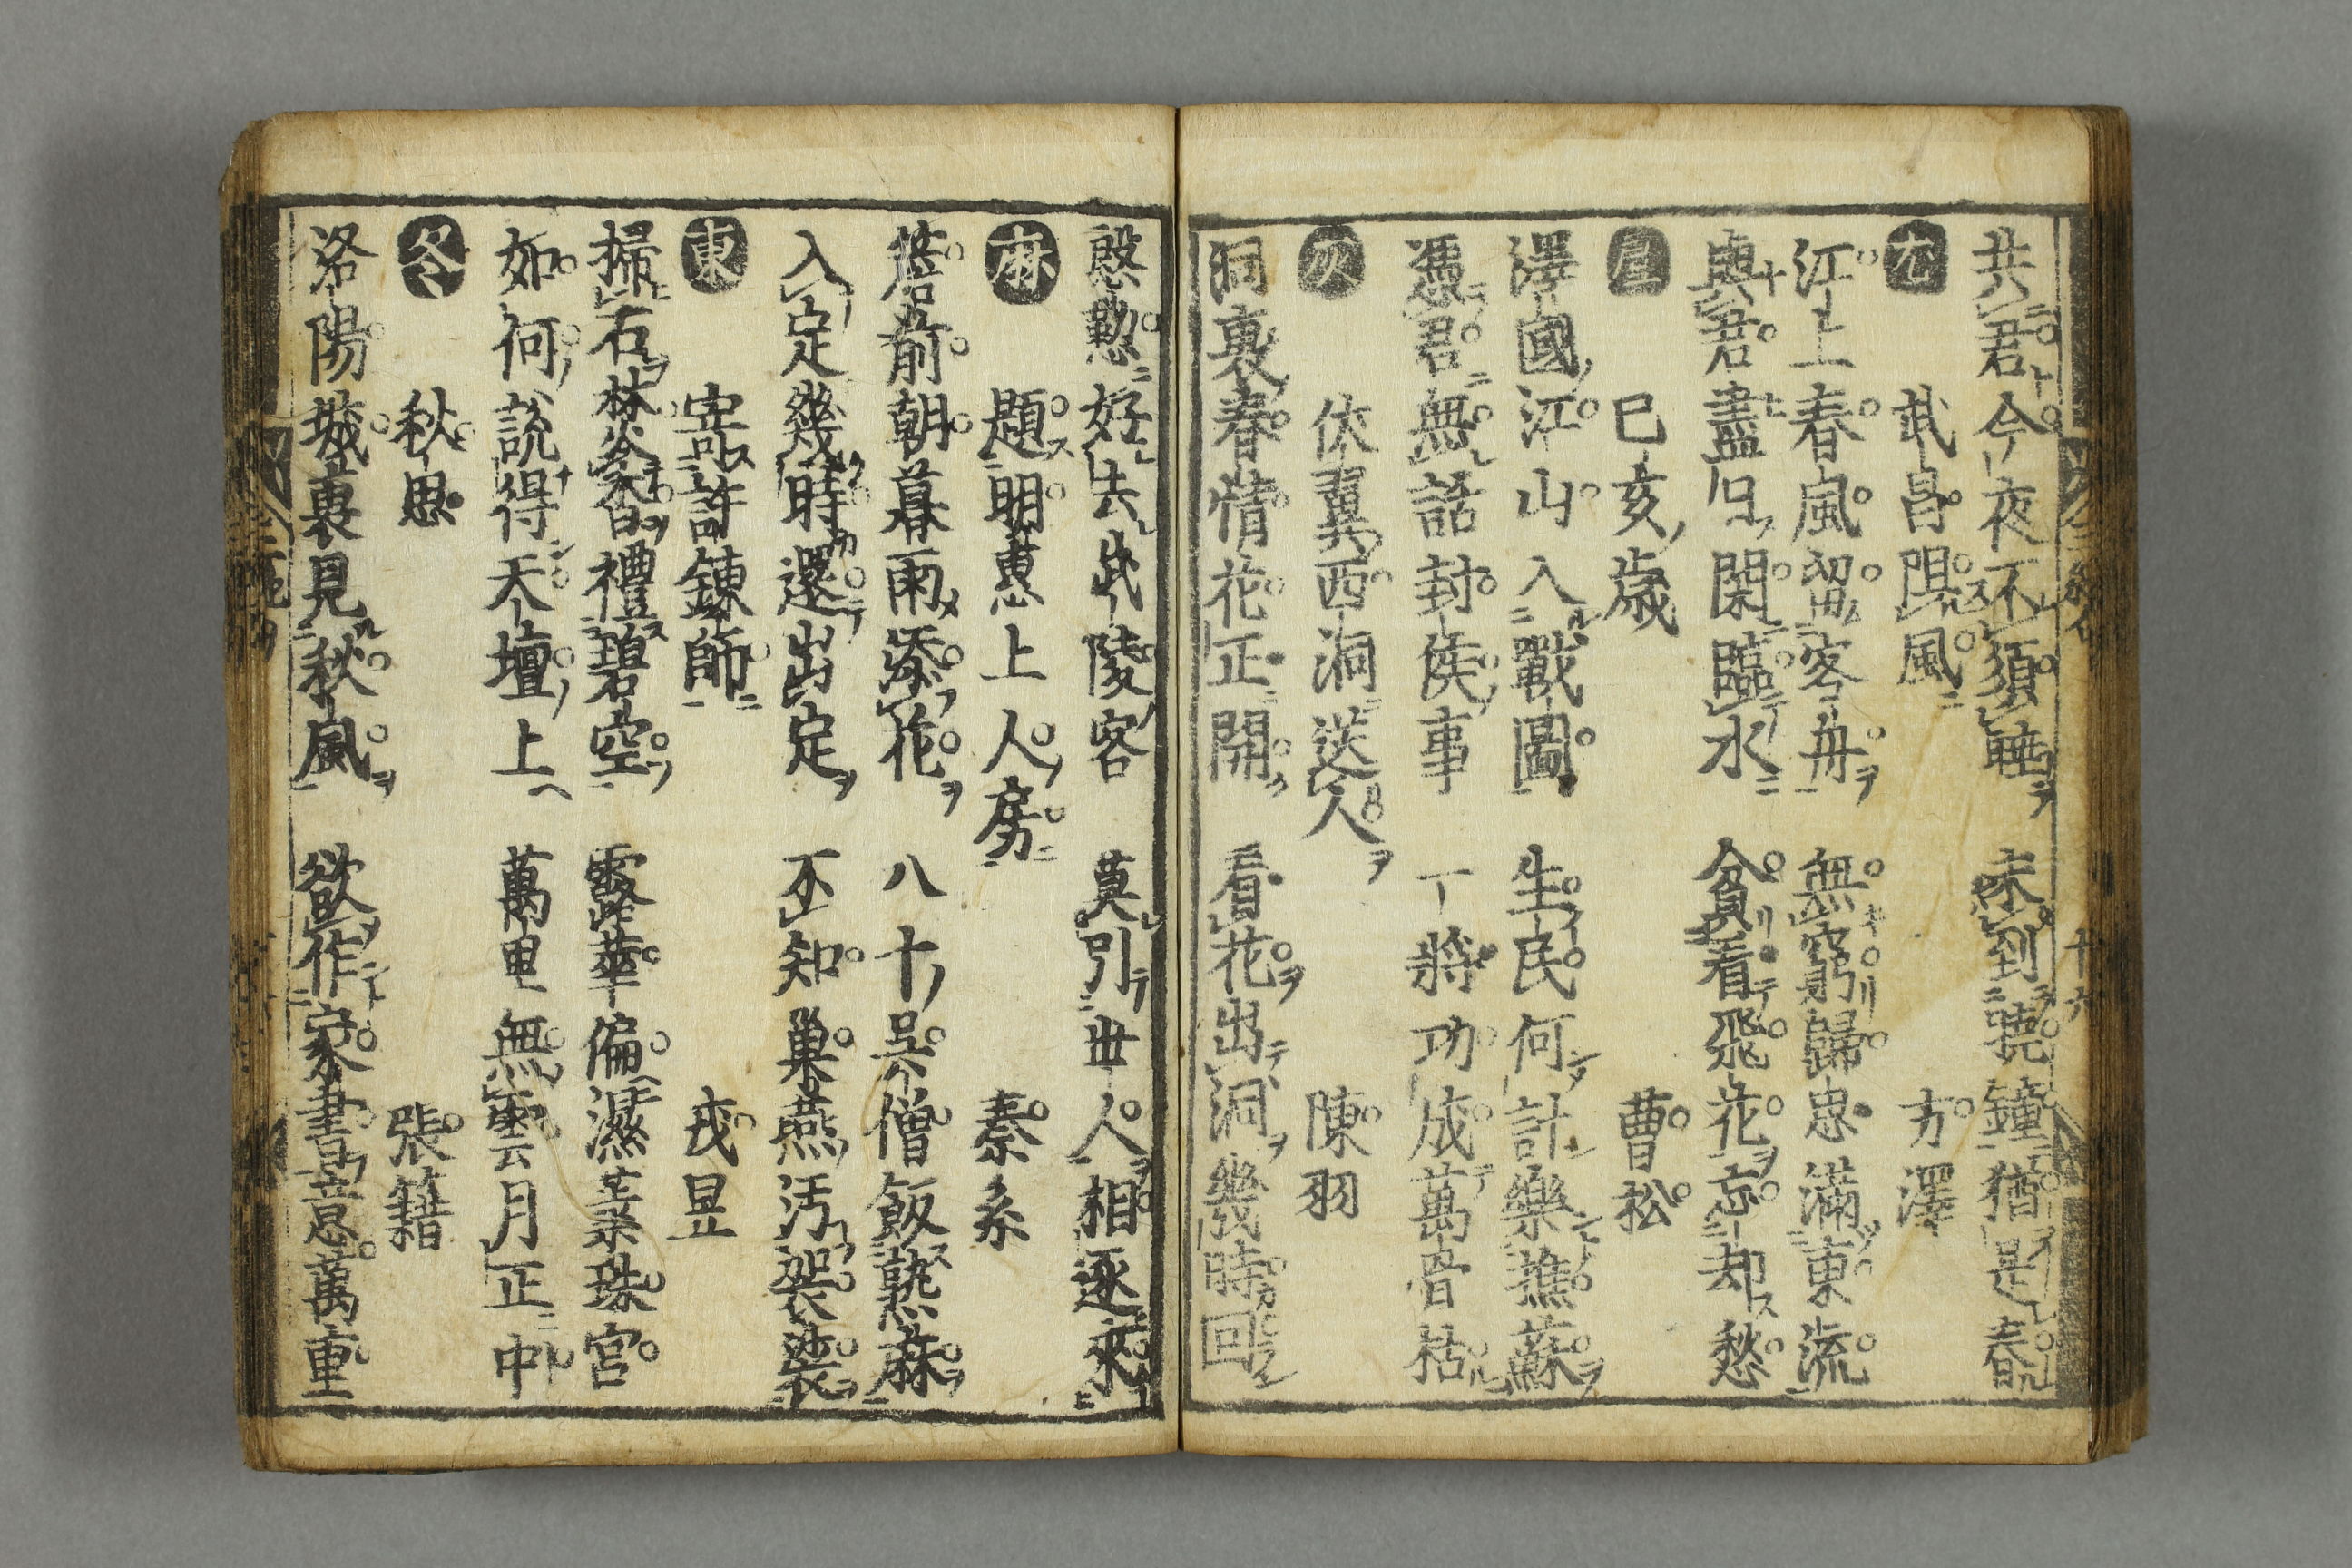 共君今夜不須睡　未到曉鐘猶是春
尤
武昌阻風　方澤
江上春風留客舟　無窮歸思滿東流
與君盡日閑臨水　貪看飛花忘却愁
虞
巳亥歲　曹松
澤國江山入戰圖　生民何計樂樵蘇
憑君無話封侯事　一將功成萬骨枯
灰
伏翼西洞送人　陳羽
洞裏春情花正開　看花出洞幾時回
慇懃好去武陵客　莫引世人相逐來
麻
題明惠上人房　秦系
簷前朝暮雨添花　八十吳僧飯熟麻
入定幾時還出定　不知巢燕汚袈裟
東
寄許鍊師　戎昱
掃石焚香禮碧空　露華偏濕蕊珠宮
如何說得天壇上　萬里無雲月正中
冬
秋思　張籍
洛陽城裏見秋風　欲作家書意萬重
十六